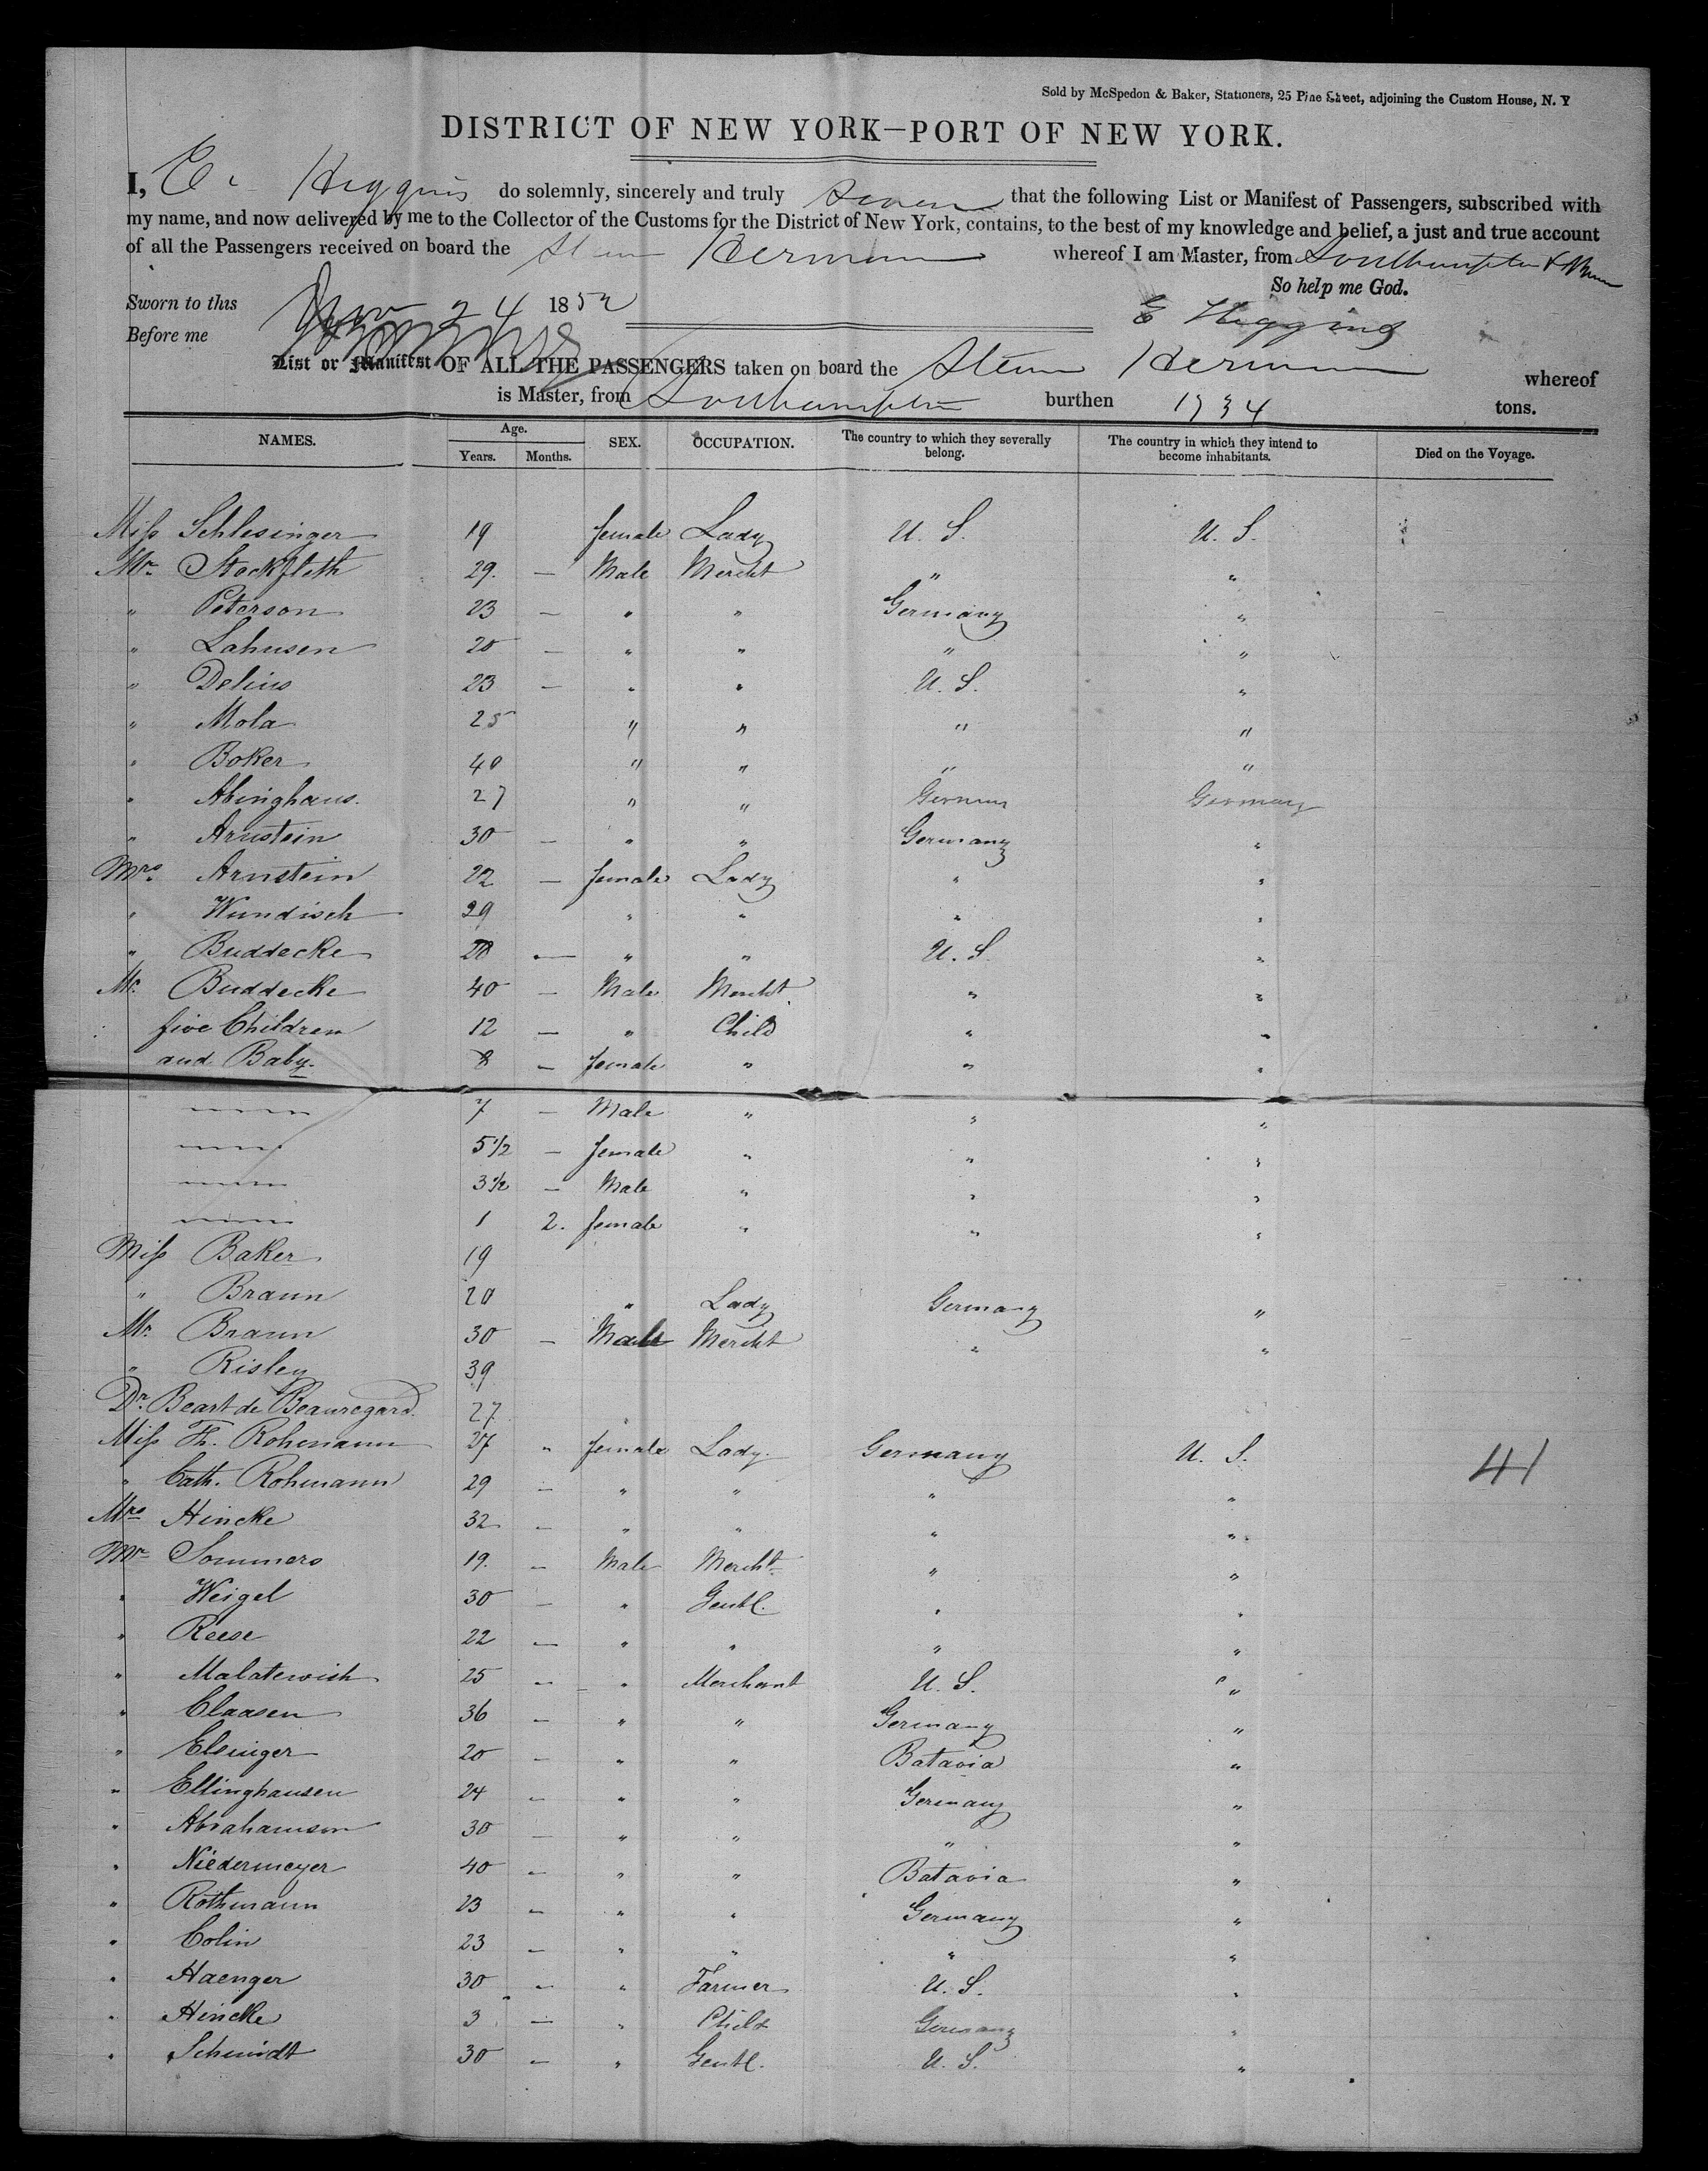 Sold by McSpedon & Baker, Stationers, 25 Pine Street, adjoining the Custom House, N. Y
DISTRICT OF NEW YORK—PORT OF NEW YORK.
I, E. Higgins do solemnly, sincerely and truly swear that the following List or Manifest of Passengers, subscribed with
my name, and now delivered by me to the Collector of the Customs for the District of New York, contains, to the best of my knowledge and belief, a just and true account
of all the Passengers received on board the Steam Herman whereof I am Master, from Southampton &
So help me God.
Sworn to this 24 1852
E Higgins
Before me
List or Manifest OF ALL THE PASSENGERS taken on board the Steam Herman whereof
is Master, from Southampton burthen 1734 tons.
NAMES. Age. Years. Months. SEX. OCCUPATION. The country to which they severally belong. The country in which they intend to become inhabitants. Died on the Voyage.
Miss Schlesinger 19 female Lady U. S. U. S.
Mr. Stockfleth 29. — Male Mercht " "
" Peterson 23 — " " Germany "
" Lahusen 20 — " " " "
" Delius 23 — " " U. S. "
" Mola 25 " " " "
" Boker 40 " " " "
" Abinghaus. 27 " " German Germany
" Arnstein 30 — " " Germany "
Mrs. Arnstein 22 — female Lady " "
" Wundisch 29 " " " "
" Buddecke — " " U. S. "
Mr. Buddecke 40 — Male Mercht. " "
five Children 12 — " Child " "
and Baby. 8 — female " " "
7 — Male " " "
5 1/2 — female " " "
3 1/2 — Male " " "
1 2. female " " "
Miss Baker 19
" Braun 20 " Lady Germany "
Mr. Braun 30 — Male Mercht " "
" Risley 39
Dr. Beart de Beauregard. 27
Miss Th. Rohmann 27 " female Lady. Germany U. S. 41
" Cath. Rohmann 29 — " " " "
Mrs Hincke 32 — " " " "
Mr Sommers 19. — Male Mercht " "
" Weigel 30 — " Gentl. " "
" Reese 22 — " " " "
" Malatewich 25 — " Merchant U. S. "
" Claasen 36 — " " Germany "
" Elsinger 20 — " " Batavia "
" Ellinghausen 24 — " " Germany "
" Abrahamson 30 — " " " "
" Niedermeyer 40 — " " Batavia "
" Rothmann 23 — " " Germany "
" Colin 23 — " " " "
" Haenger 30 — " Farmer U. S. "
" Hincke 3 — " Child Germany "
" Schmidt 30 — " Gentl. U. S. "